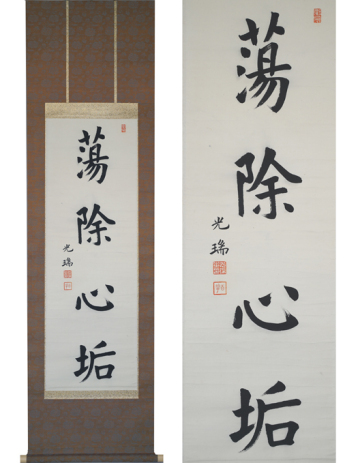 蕩除心垢
光瑞
蕩除心垢
光瑞